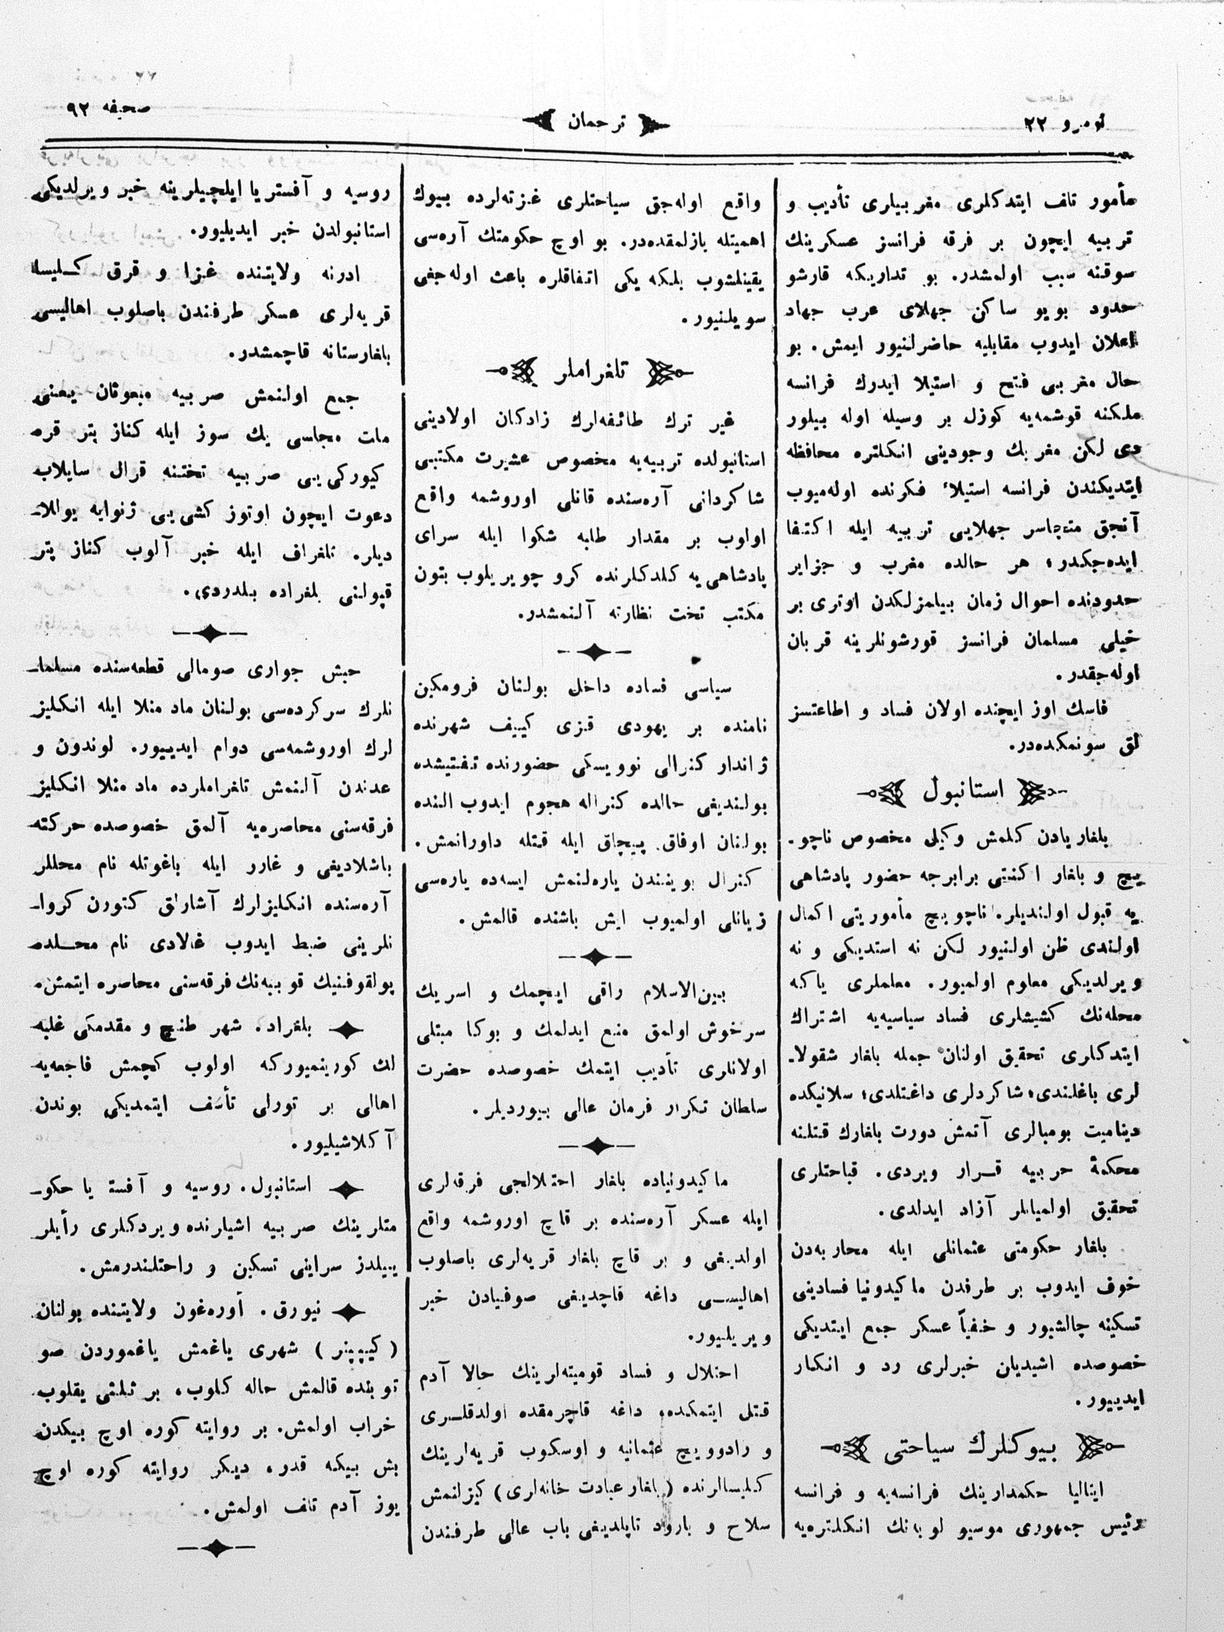 نومرو ٢٢
ترجمان
صحيفه ٩٢
مأمور تلف ايتدكلرى مغربيلرى تأديب و
تربيه ايچون بر فرقه فرانسز عسكرينك
سوقنه سبب اولمشدر. بو تداريكه قارشو
حدود بويو ساكن جهلاى عرب جهاد
اعلان ايدوب مقابليه حاضرلنيور ايمش. بو
حال مغربى فتح و استيلا ايدرك فرانسه
ملكنه قوشمه‌يه كوزل بر وسيله اوله بيلور
دى لكن مغربك وجودينى انكلتره محافظه
ايتديكندن فرانسه استيلاء فكرنده اوله‌ميوب
آنجق متجاسر جهلايى تربيه ايله اكتفا
ايده‌جكدر؛ هر حالده مغرب و جزاير
حدودنده احوال زمان بيلمزلكدن اوترى بر
خيلى مسلمان فرانسز قورشونلرينه قربان
اوله‌جقدر.
فاسك اوز ايچنده اولان فساد و اطاعتسز
لق سونمكده‌در.
استانبول
بلغاريادن كلمش وكيلى مخصوص ناچو-
ييچ و بلغار اكنتى برابرجه حضور پادشاهى
يه قبول اولنديلر. ناچوييچ مأموريتى اكمال
اولندى ظن اولنيور لكن نه استديكى و نه
ويرلديكى معلوم اولميور. معلملرى ياكه
محله‌نك كشيشلرى فساد سياسيه‌يه اشتراك
ايتدكلرى تحقق اولنان جمله بلغار شقولا-
لرى باغلندى؛ شاكردلرى داغتلدى؛ سلانيكده
ديناميت بومبالرى آتمش دورت بلغارك قتلنه
محكمهٔ حربيه قرار ويردى. قباحتلرى
تحقيق اولميانلر آزاد ايدلدى.
بلغار حكومتى عثمانلى ايله محاربه‌دن
خوف ايدوب بر طرفدن ماكيدونيا فسادينى
تسكينه چالشيور و خفياً عسكر جمع ايتديكى
خصوصده اشيديان خبرلرى رد و انكار
ايدييور.
بيوكلرك سياحتى
ايتاليا حكمدارينك فرانسه‌يه و فرانسه
رئيس جمهورى موسيو لوبه‌نك انكلتره‌يه
واقع اوله‌جق سياحتلرى غزته‌لرده بيوك
اهميتله يازلمقده‌در. بو اوچ حكومتك آره‌سى
يقينلشوب بلكه يكى اتفاقلره باعث اوله‌جغى
سويلنيور.
تلغراملر
غير ترك طائفه‌لرك زادكان اولادينى
استانبولده تربيه‌يه مخصوص عشيرت مكتبى
شاكردانى آره‌سنده قانلى اوروشمه واقع
اولوب بر مقدار طلبه شكوا ايله سراى
پادشاهى‌يه كلدكلرنده كرو چويريلوب بتون
مكتب تخت نظارته آلنمشدر.
سياسى فساده داخل بولنان فرومكين
نامنده بر يهودى قزى كييف شهرنده
ژاندار كنرالى نوويسكى حضورنده تفتيشده
بولنديغى حالده كنراله هجوم ايدوب النده
بولنان اوفاق پيچاق ايله قتله داورانمش.
كنرال بويندن ياره‌لنمش ايسه‌ده ياره‌سى
زيانلى اولميوب ايش باشنده قالمش.
بين‌الاسلام راقى ايچمك و اسريك
سرخوش اولمق منع ايدلمك و بوكا مبتلى
اولانلرى تأديب ايتمك خصوصده حضرت
سلطان تكرار فرمان عالى بيورديلر.
ماكيدونياده بلغار احتلالجى فرقه‌لرى
ايله عسكر آره‌سنده بر قاچ اوروشمه واقع
اولديغى و بر قاچ بلغار قريه‌لرى باصلوب
اهاليسى داغه قاچديغى صوفيادن خبر
ويريليور.
احتلال و فساد قوميته‌لرينك حالا آدم
قتلى ايتمكده، داغه قاچرمقده اولدقلرى
و رادوويچ عثمانيه و اوسكوب قريه‌لرينك
كليسالرنده (بلغار عبادت خانه‌لرى) كيزلنمش
سلاح و بارود تاپلديغى باب عالى طرفندن
روسيه و آفستريا ايلچيلرينه خبر ويرلديكى
استانبولدن خبر ايديليور.
ادرنه ولايتنده غزا و قرق كليسا
قريه‌لرى عسكر طرفندن باصلوب اهاليسى
بلغارستانه قاچمشدر.
جمع اولنمش صربيه مبعوثان يعنى
ملت مجلسى يك سوز ايله كناز پتر قره
كيوركى‌يى صربيه تختنه قرال سايلاب
دعوت ايچون اوتوز كشى‌يى ژنوايه يوللا-
ديلر. تلغراف ايله خبر آلوب كناز پتر
قبولنى بلغراده بلدردى.
حبش جوارى صومالى قطعه‌سنده مسلما-
نلرك سركرده‌سى بولنان ماد منلا ايله انكليز
لرك اوروشمه‌سى دوام ايدييور. لوندون و
عدندن آلنمش تلغراملرده ماد منلا انكليز
فرقه‌سنى محاصره‌يه آلمق خصوصده حركته
باشلاديغى و غارر ايله باغوتله نام محللر
آره‌سنده انكليزلرك آشارلق كتورن كروا-
نلرينى ضبط ايدوب غالادى نام محلده
پولقوفنيك قوبيه‌نك فرقه‌سنى محاصره ايتمش.
بلغراد. شهر طنچ و مقدمكى غلبه
لك كورينميوركه اولوب كچمش فاجعه‌يه
اهالى بر تورلى تأسف ايتمديكى بوندن
آكلاشيليور.
استانبول. روسيه و آفستريا حكو-
متلرينك صربيه اشيارنده ويردكلرى رأيلر
ييلدز سراينى تسكين و راحتلندرمش.
نيورق. أوره‌غون ولايتنده بولنان
(كيپپنر) شهرى ياغمش ياغموردن صو
توبنده قالمش حاله كلوب، بر ثلثى يقلوب
خراب اولمش. بر روايته كوره اوچ بيكدن
بش بيكه قدر، ديكر روايته كوره اوچ
يوز آدم تلف اولمش.